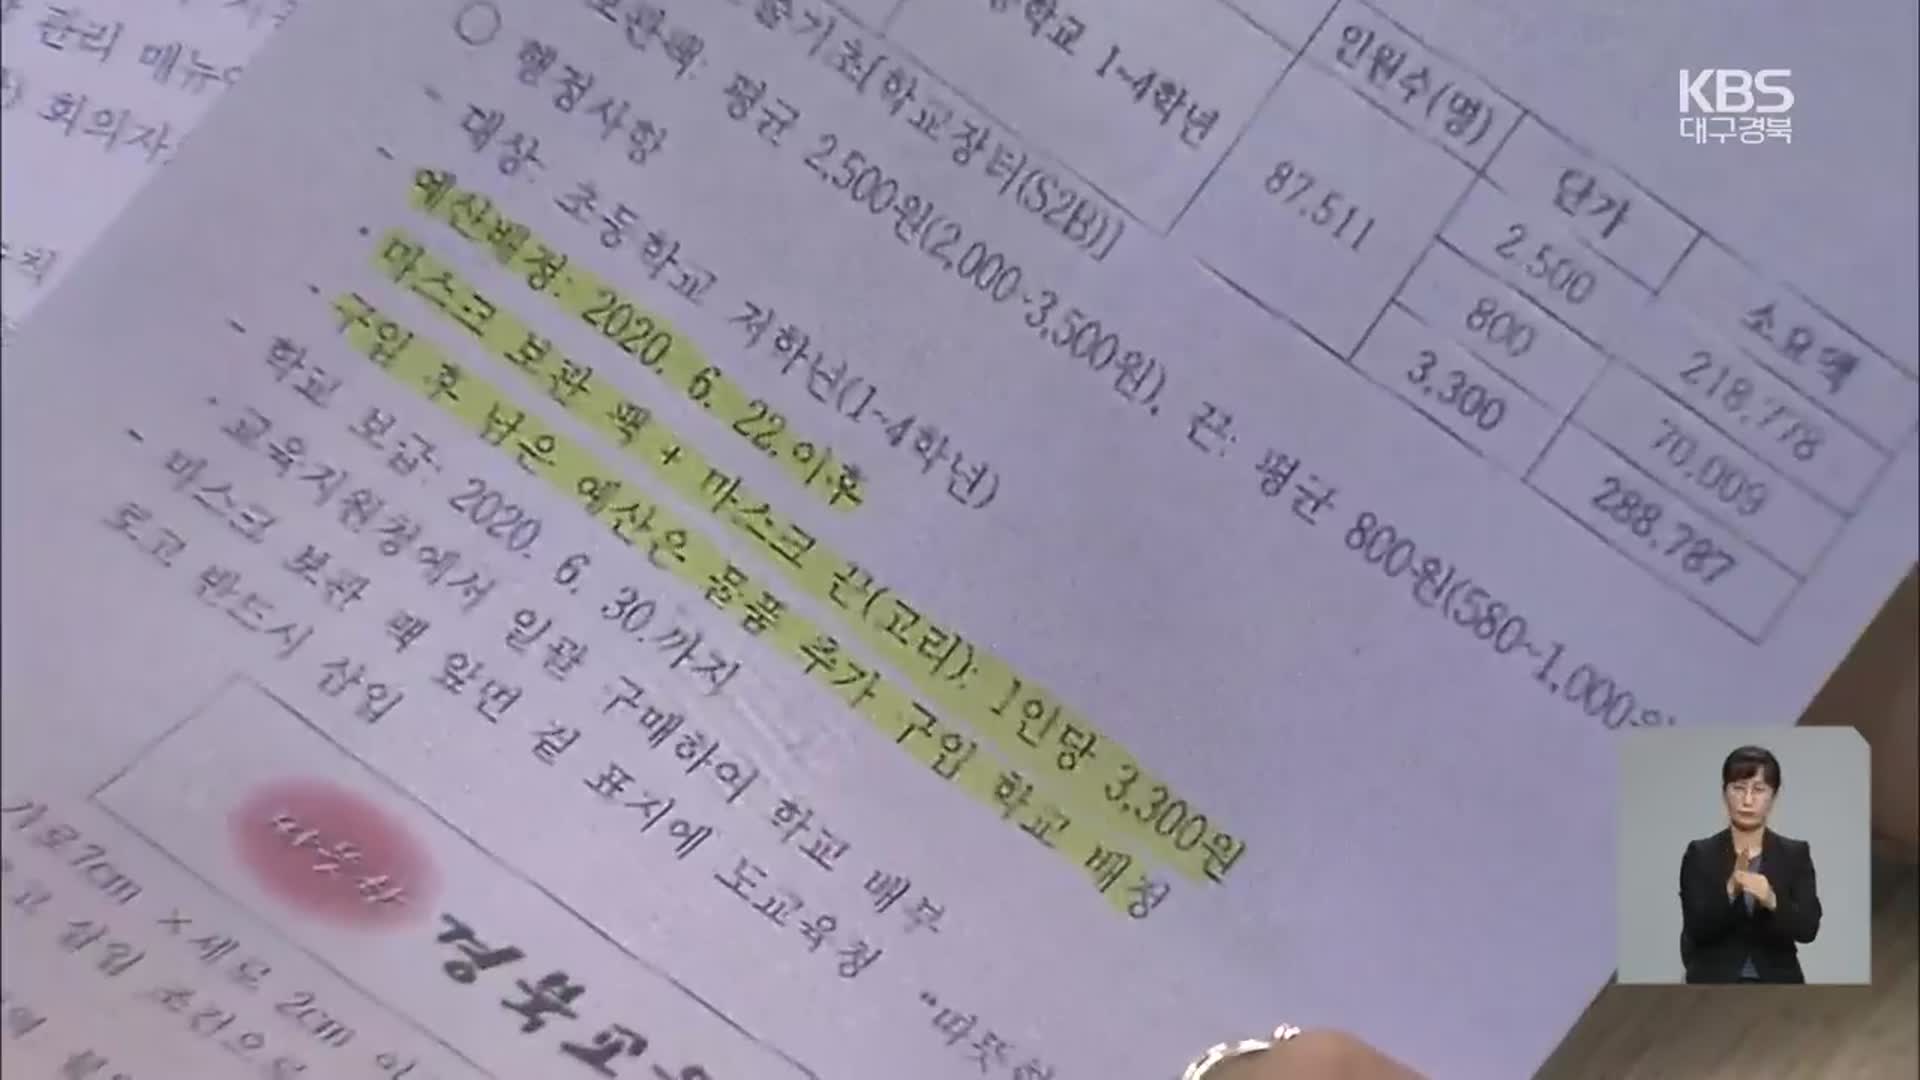 관리 매뉴
회의자
기초[학교장터(S2B)]
학교 1~4학년
인원수(명)
단가
소요액
87,511
2,500
218,778
800
70,009
3,300
288,787
보관팩: 평균 2,500원(2,000~3,500원), 끈: 평균 800원(580~1,000원
○ 행정사항
- 대상: 초등학교 저학년(1~4학년)
- 예산배정: 2020. 6. 22.이후
· 마스크 보관 팩 + 마스크 끈(고리): 1인당 3,300원
· 구입 후 남은 예산은 물품 추가 구입 학교 배정
- 학교 보급: 2020. 6. 30.까지
· 교육지원청에서 일괄 구매하여 학교 배부
- 마스크 보관 팩 앞면 겉 표지에 도교육청 "따뜻한
로고 반드시 삽입
따뜻한
경북교육
가로7cm ×세로 2cm 이
고 삽입 조건으로
KBS
대구경북